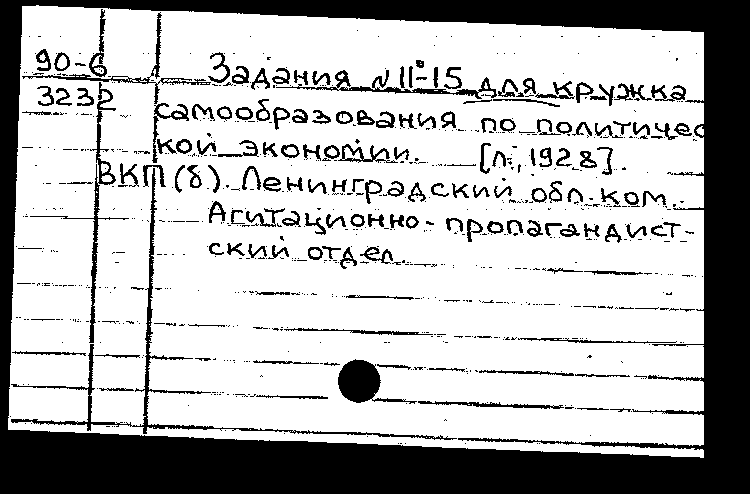 90-6 Задания №11-15 для кружка
3232 самообразования по политичес
кой экономии. [Л., 1928].
ВКП(б). Ленинградский обл. ком.
Агитационно-пропагандист-
ский отдел.